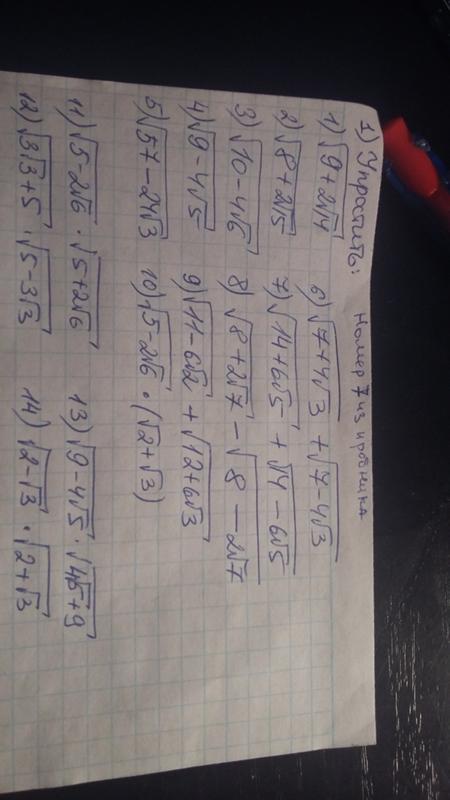 Номер 7 из
1) Упростить:
1) √(9+2√14) 6) √(7+4√3) + √(7-4√3)
2) √(8+2√5) 7) √(14+6√5) + √(4-6√5)
3) √(10-4√6) 8) √(8+2√7) - √(8-2√7)
4) √(9-4√5) 9) √(11-6√2) + √(12+6√3)
5) √(57-24√3) 10) √(5-2√6) · (√2+√3)
11) √(5-2√6) · √(5+2√6) 13) √(9-4√5) · √(4√5+9)
12) √(3√3+5) · √(5-3√3) 14) √(2-√3) · √(2+√3)